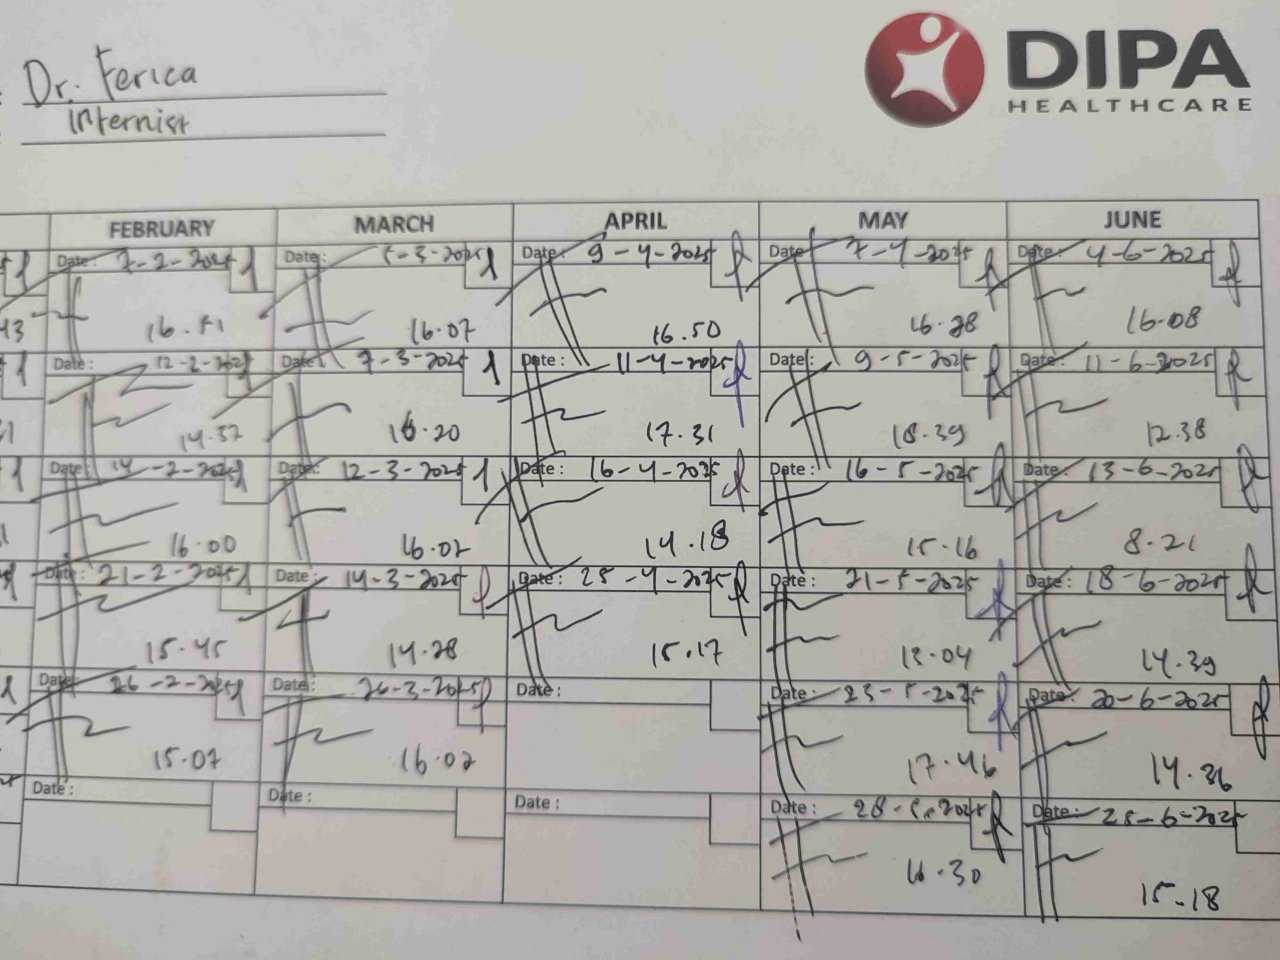 DIPA
HEALTHCARE
Dr. Ferica
Internist
FEBRUARY MARCH APRIL MAY JUNE
Date: 7-2-2025 Date: 5-3-2025 Date: 9-4-2025 Date: 7-4-2025 Date: 4-6-2025
43 16.51 16.07 16.50 16.28 16.08
Date: 12-2-2025 Date: 7-3-2025 Date: 11-4-2025 Date: 9-5-2025 Date: 11-6-2025
14.37 16.20 17.31 18.39 12.38
Date: 14-2-2025 Date: 12-3-2025 Date: 16-4-2025 Date: 16-5-2025 Date: 13-6-2025
16.00 16.02 14.18 15.16 8.21
Date: 21-2-2025 Date: 14-3-2025 Date: 25-4-2025 Date: 21-5-2025 Date: 18-6-2025
15.45 14.28 15.17 13.04 14.39
Date: 26-2-2025 Date: 26-3-2025 Date: Date: 23-5-2025 Date: 20-6-2025
15.07 16.02 17.46 14.36
Date: Date: Date: Date: 28-5-2025 Date: 25-6-2025
16.30 15.18